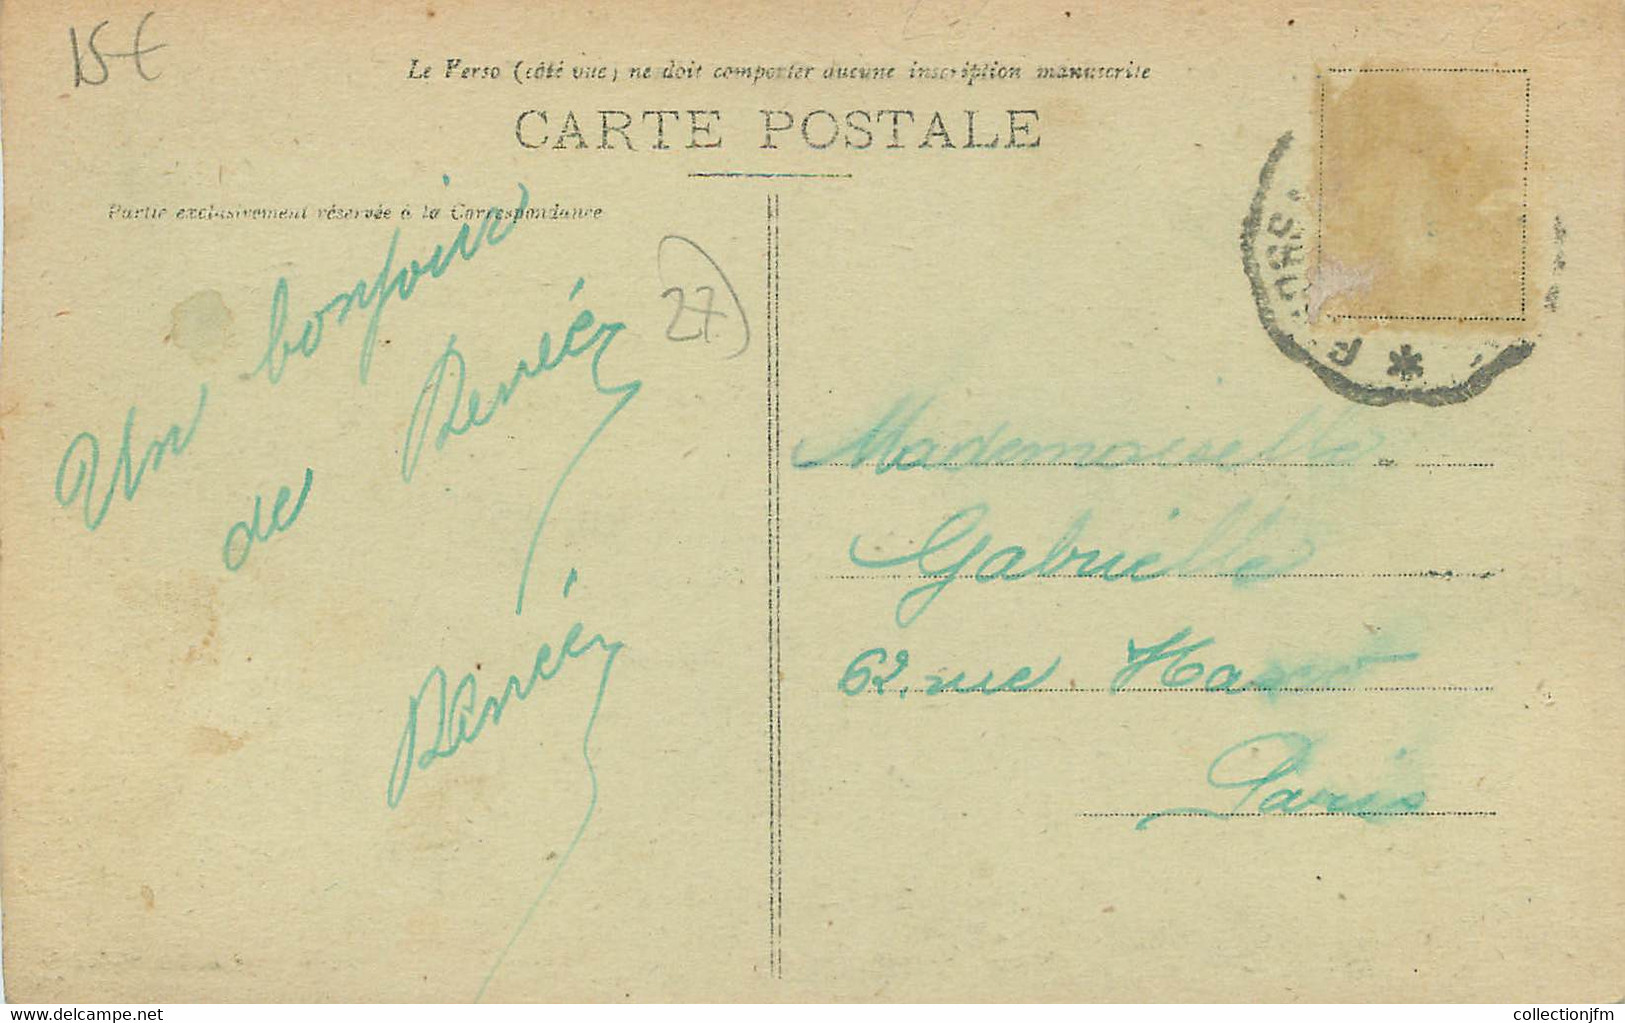 15€
Le Verso (côté vue) ne doit comporter aucune inscription manuscrite
CARTE POSTALE
Partie exclusivement réservée à la Correspondance
Un bonjour
de Renée
Renée
27
Mademoiselle
Gabrielle
62, rue
Paris
delcampe.net
collectionjfm